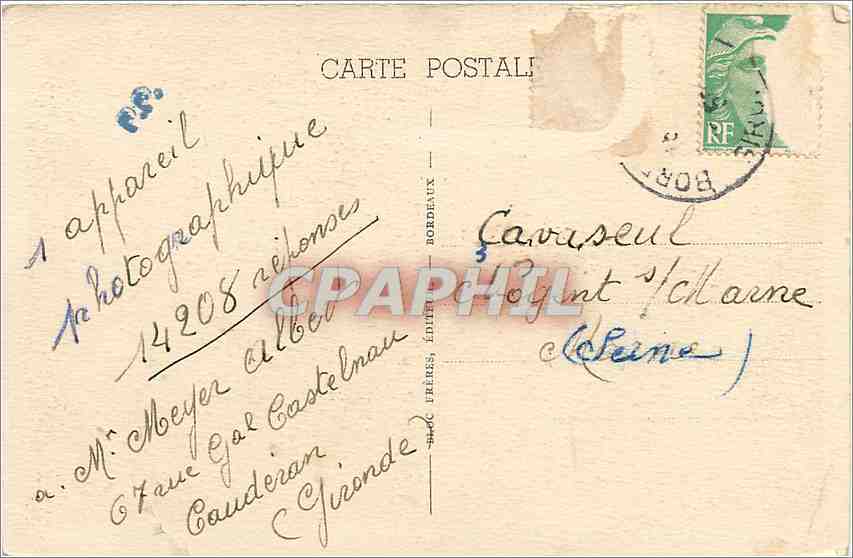 CARTE POSTALE
P.S.
1 appareil
photographique
14208 réponses
a. Mr. Meyer Albert
67 rue Gal Castelnau
Caudéran
(Gironde)
BLOC FRÈRES, ÉDITEURS — BORDEAUX —
RF
BOR
GIRO
Cavaseul
Nogent s/Marne
(Seine)
CPAPHIL